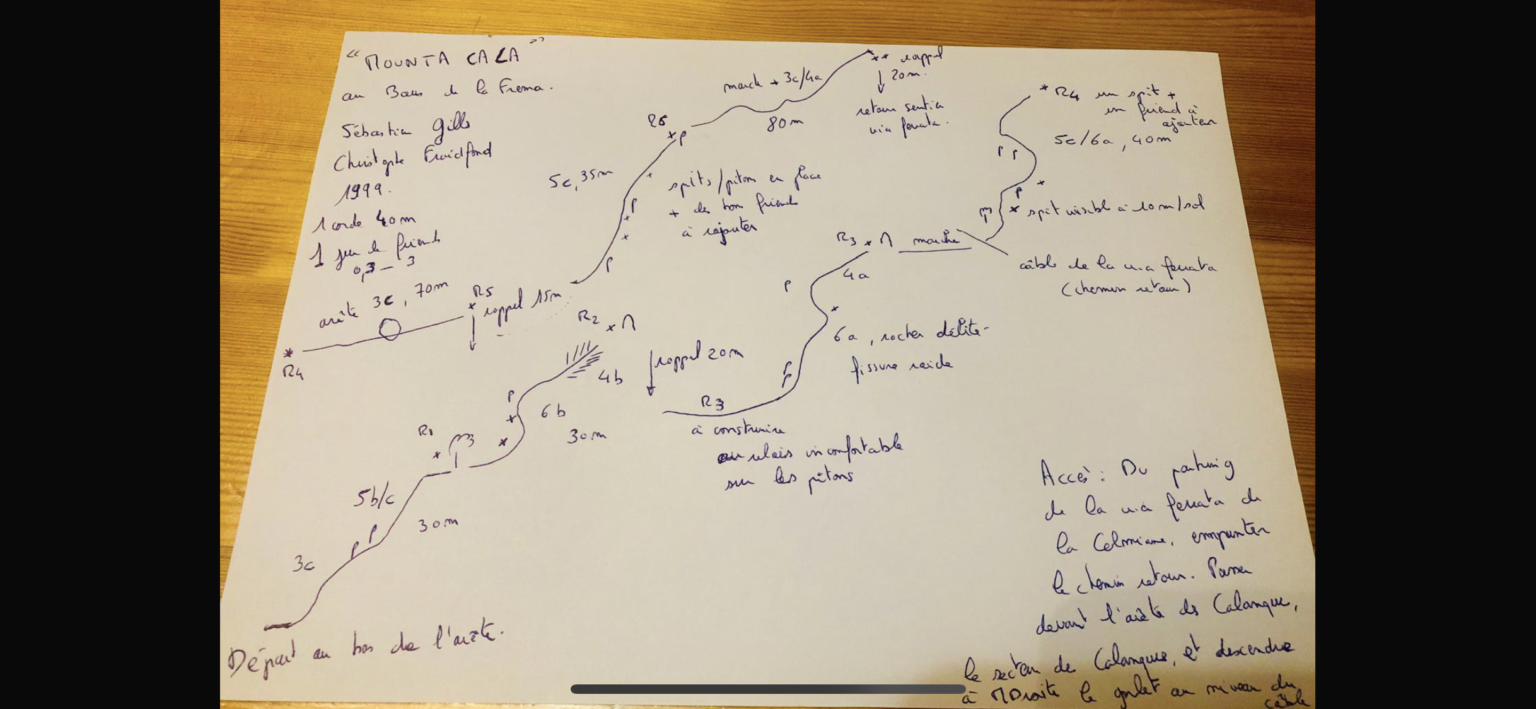 “MOUNTA CALA”
au Baus de la Frema.
Sébastien Gills
Christophe
1999.
1 corde 40m
1 jeu de friends
0,3 – 3
arête 3c, 70m
R4
R5
rappel 15m
5c, 35m
R6
P
P
P
spits/piton en place
+ de bon friends
à rajouter
march + 3c/4a
80m
rappel
20m.
retour sentier
via ferrata.
Départ au bas de l'arête.
3c
P P
5b/c
30m
R1
P
6b
30m
4b
R2
rappel 20m
R3
à construire
ou relais inconfortable
sur les pitons
P
P
P
6a, rocher délité-
fissure raide
4a
R3
marche
câble de la via ferrata
(chemin retour)
spit visible à 10m/sol
P
P P
5c/6a, 40m
R4 un spit +
un friend à
ajouter
Accès : Du parking
de la via ferrata de
la Colmiane, emprunter
le chemin retour. Passer
devant l'arête des Calanques,
le secteur de Calanques, et descendre
à Droite le goulet au niveau du
câble